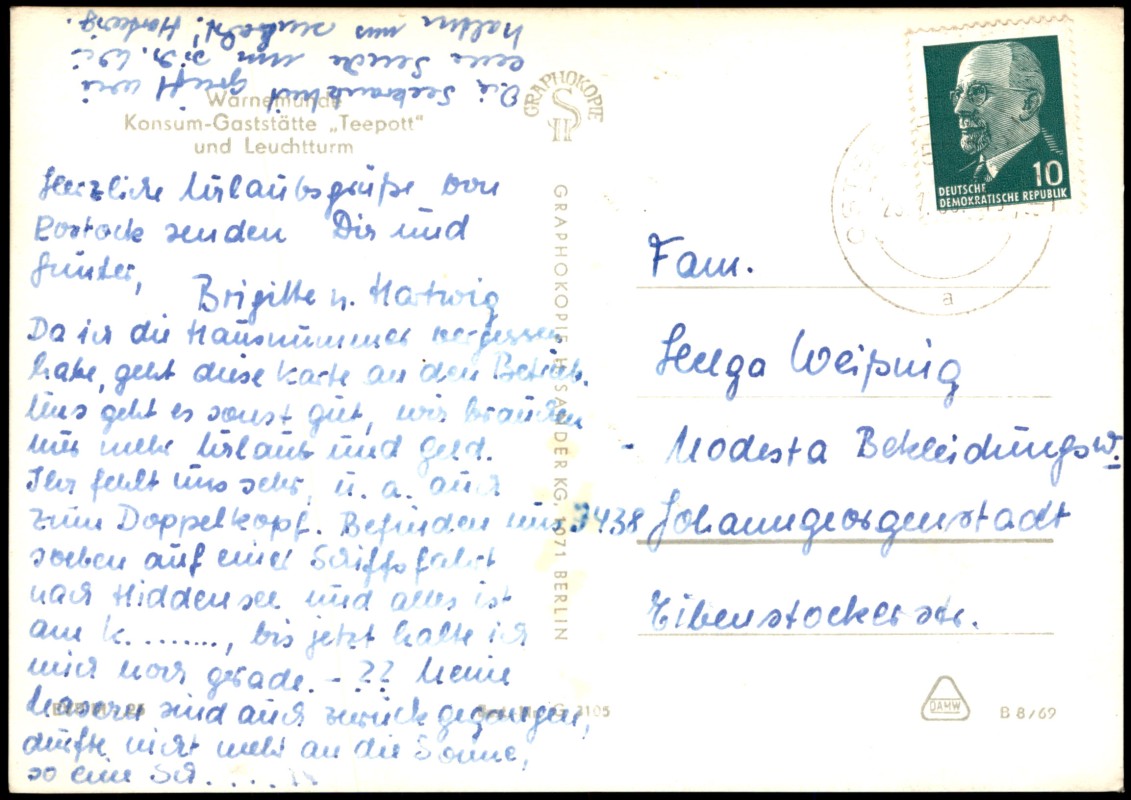 Warnemünde
Konsum-Gaststätte „Teepott“
und Leuchtturm
Herzliche Urlaubsgrüße von
Rostock senden Dir und
Günter,
Brigitte u. Hartwig
Da ich die Hausnummer vergessen
habe, geht diese Karte an den Betrieb.
Uns geht es sonst gut, wir brauchen
nur mehr Urlaub und Geld.
Ihr fehlt uns sehr, u. a. auch
zum Doppelkopf. Befinden uns
soeben auf einer Schiffsfahrt
nach Hiddensee und alles ist
am K........, bis jetzt halte ich
mich noch gerade. - ?? Meine
Masern sind auch zurückgegangen,
durfte nicht mehr an die Sonne,
so eine Sch.....
Die Seekrankheit greift wie
eine Seuche um sich. Wir
halten uns senkrecht! Hartwig.
GRAPHOKOPIE
GRAPHOKOPIE H. SANDER KG, 1071 BERLIN
DEUTSCHE
DEMOKRATISCHE REPUBLIK
10
a
Fam.
Helga Weißnig
- Modesta Bekleidungsw.
9438 Johanngeorgenstadt
Eibenstockerstr.
DAMW
B 8/69